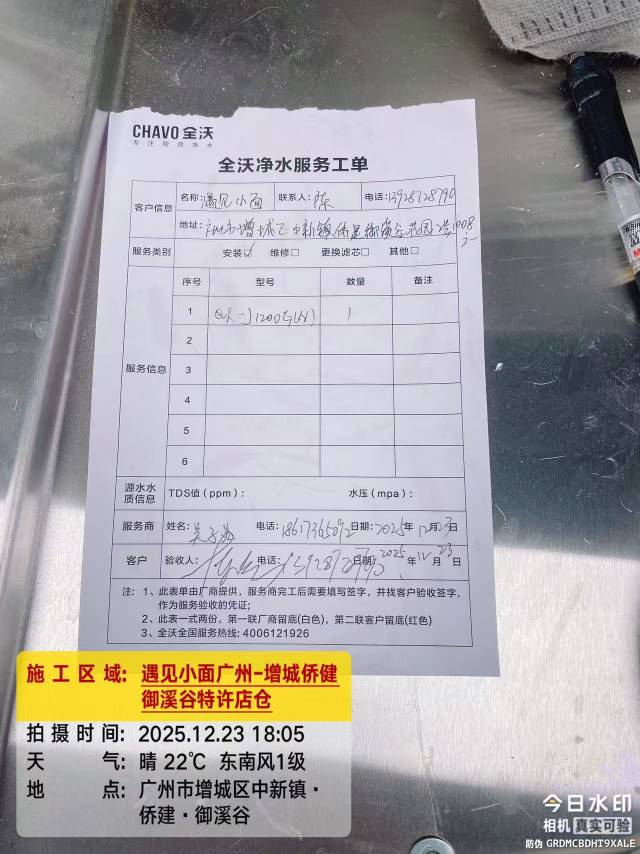 CHAVO 全沃
专注厨房净水
全沃净水服务工单
客户信息
名称: 遇见小面 联系人: 陈 电话: 13928728790
地址: 广州市增城区中新镇侨建御溪谷花园2栋1008
服务类别 安装☑ 维修□ 更换滤芯□ 其他□
服务信息
序号 型号 数量 备注
1 1200G 1
2
3
4
5
6
源水水质信息 TDS值（ppm）： 水压（mpa）：
服务商 姓名: 电话: 日期: 2025年12月23日
客户 验收人: 电话: 日期: 2025年12月23日
注: 1、此表单由厂商提供，服务商完工后需要填写签字，并找客户验收签字，
作为服务验收的凭证;
2、此表一式两份，第一联厂商留底(白色)，第二联客户留底(红色)
3、全沃全国服务热线: 4006121926
施工区域: 遇见小面广州-增城侨健
御溪谷特许店仓
拍摄时间: 2025.12.23 18:05
天气: 晴 22℃ 东南风1级
地点: 广州市增城区中新镇·
侨建·御溪谷
今日水印
相机 真实可验
防伪 GRDMCBDHT9XALE